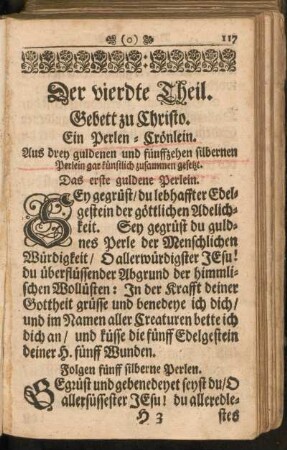 (o) 117
Der vierdte Theil.
Gebett zu Christo.
Ein Perlen-Crönlein.
Aus drey guldenen und fünffzehen silbernen
Perlein gar künstlich zusammen gesetzt.
Das erste guldene Perlein.
SEy gegrüst/ du lebhaffter Edel-
gestein der göttlichen Adelich-
keit. Sey gegrüst du guld-
nes Perle der Menschlichen
Würdigkeit/ O allerwürdigster JEsu!
du überflüssender Abgrund der himmli-
schen Wollüsten: In der Krafft deiner
Gottheit grüsse und benedeye ich dich/
und im Namen aller Creaturen bette ich
dich an/ und küsse die fünff Edelgestein
deiner H. fünff Wunden.
Folgen fünff silberne Perlen.
BEgrüst und gebenedeyet seyst du/ O
allersüssester JEsu! du alleredle-
H 3 stes